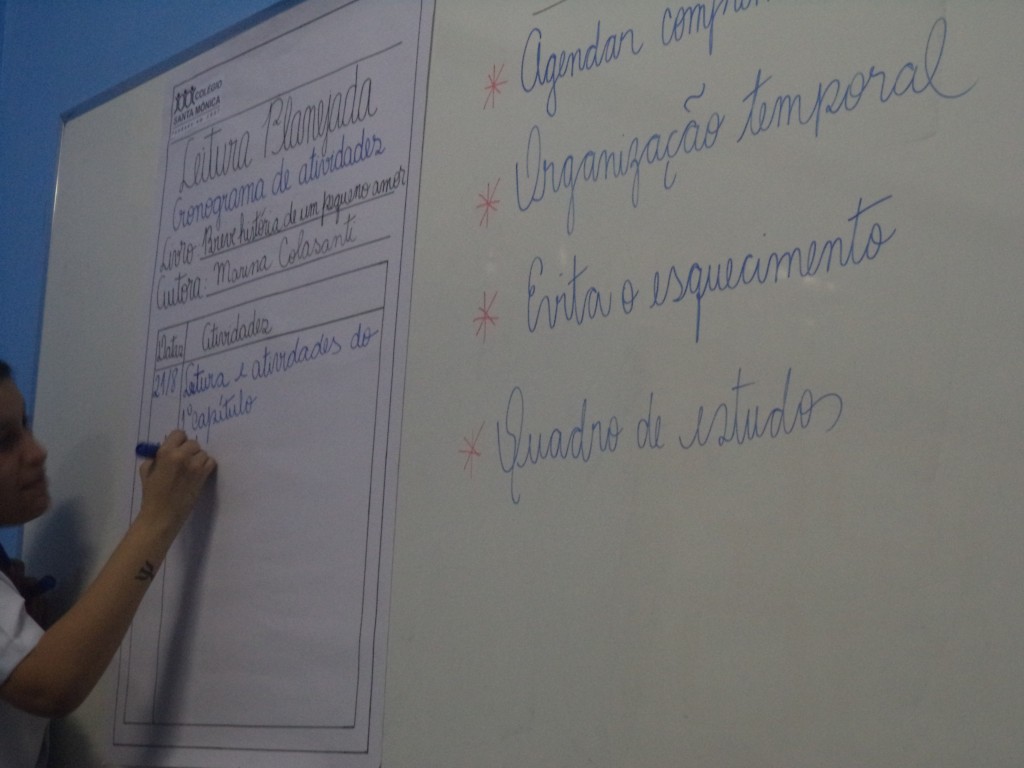 COLÉGIO
SANTA MÔNICA
Leitura Planejada
Cronograma de atividades
Livro Breve história de um pequeno amor
Autora: Marina Colasanti
Datas Atividades
21/8 Leitura e atividades do
1º capítulo
* Agendar
* Organização temporal
* Evita o esquecimento
* Quadro de estudos